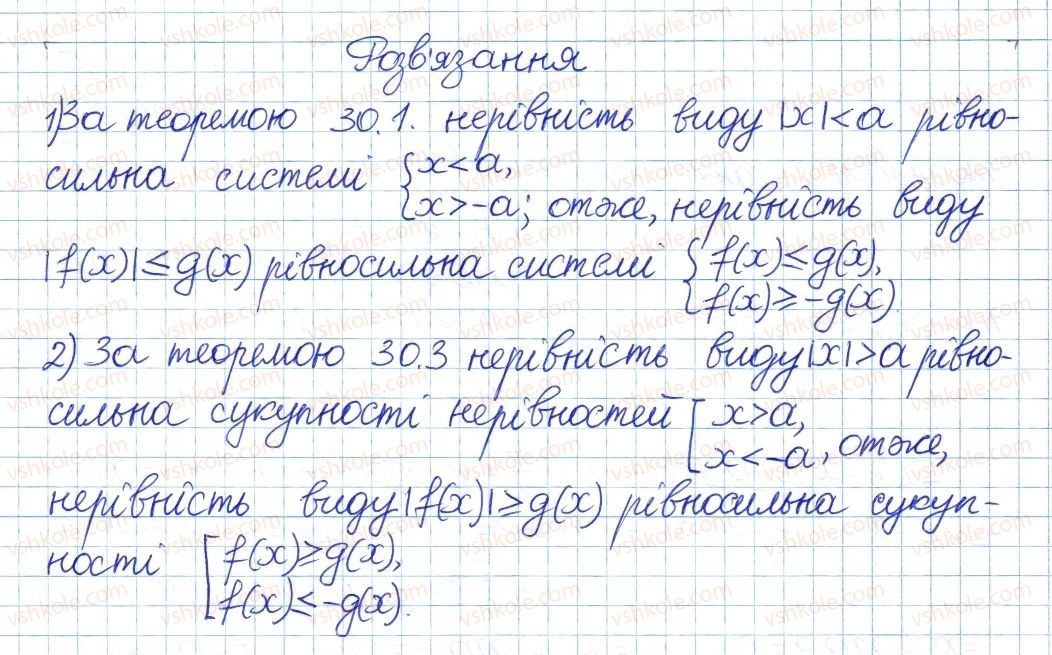 Розв'язання
1) За теоремою 30.1. нерівність виду |x|<a рівно-
сильна системі { x<a,
x>-a; отже, нерівність виду
|f(x)|≤g(x) рівносильна системі { f(x)≤g(x),
f(x)≥-g(x).
2) За теоремою 30.3 нерівність виду |x|>a рівно-
сильна сукупності нерівностей [ x>a,
x<-a, отже,
нерівність виду |f(x)|≥g(x) рівносильна сукуп-
ності [ f(x)≥g(x),
f(x)≤-g(x).
vshkole.com